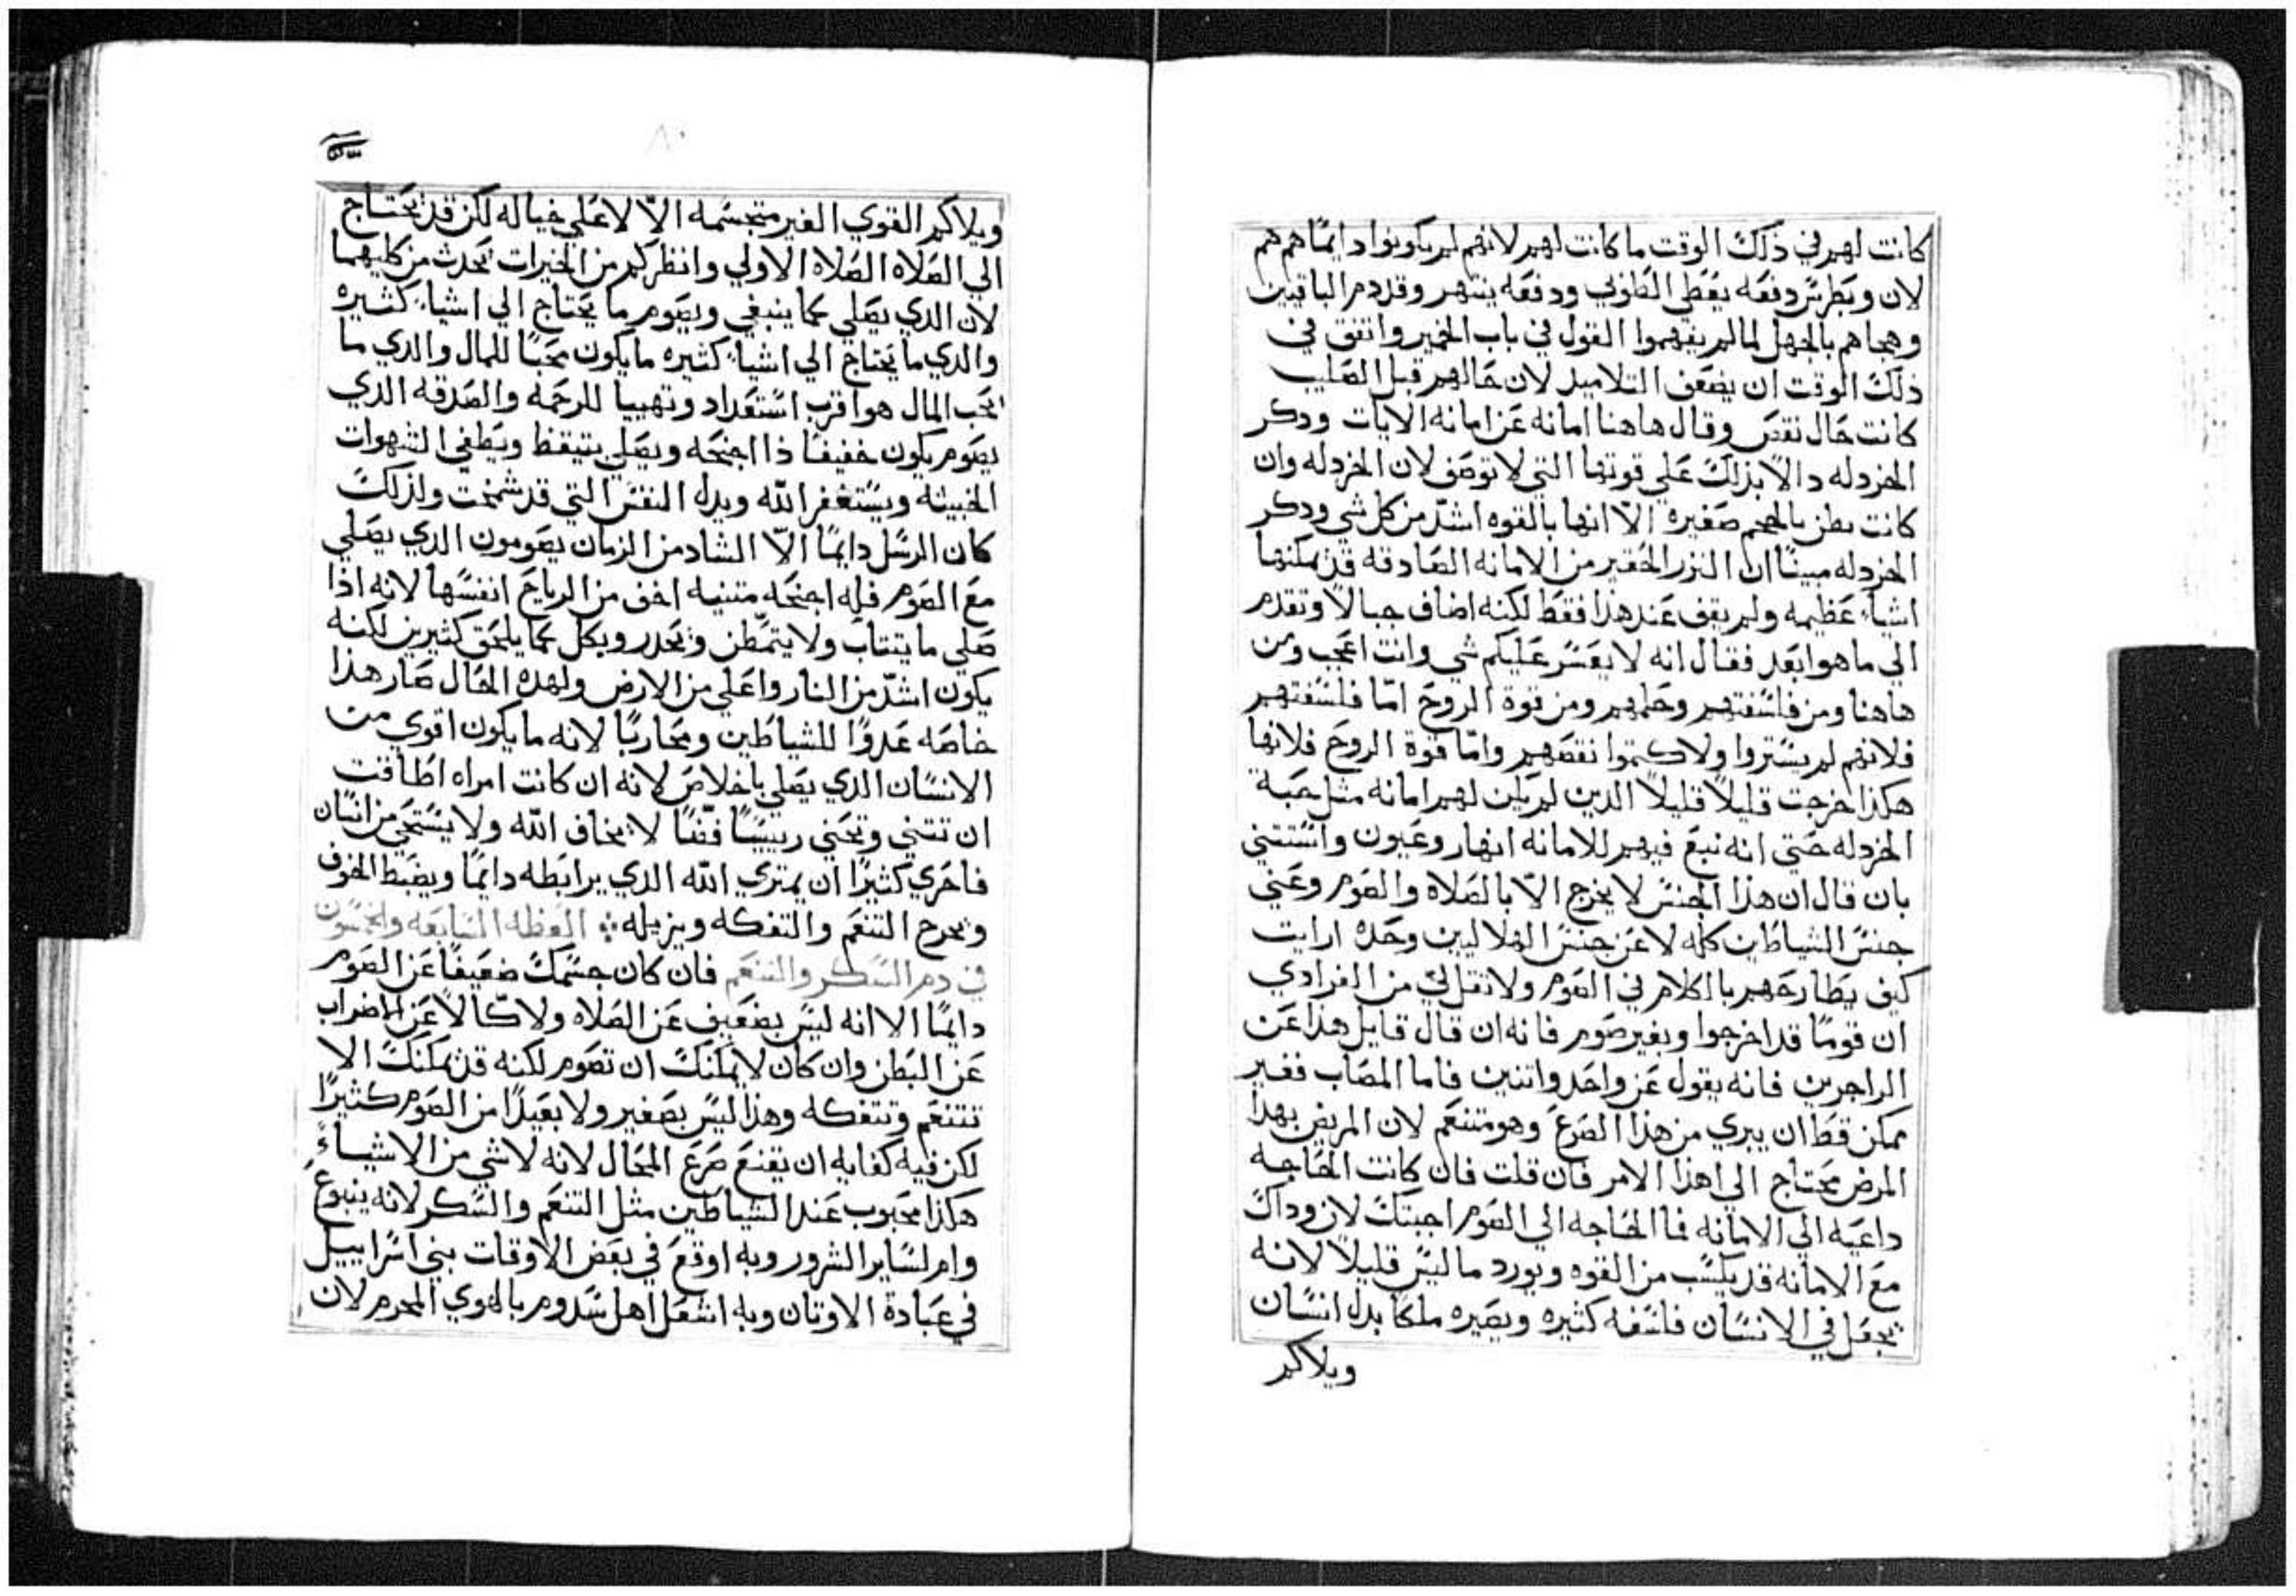 كانت لهم في ذلك الوقت ما كانت لهم لانهم لم يكونوا دايمًا هم هم
لان وبطرس دفعه يعَطي الطوبي ودفعَه ينتهر وقد دم الباقيين
وهجاهم بالجهل لما لم يفهموا القول في باب الخمير واتفق في
ذلك الوقت ان يضعف التلاميد لان حَالهم قبل الصَليب
كانت حَال نقصَ وقال هاهنا امانه عَن امانه الايات ودكر
الخردله دالاً بذلك عَلي قوتها التي لا توصَف لان الخردله وان
كانت تظن بالحجم صَغيره الّا انها بالقوه اشدّ من كل شي ودكر
الخردله مبينًا ان النزر الحَقير من الامانه الصَادقه قد يمكنها
اشيآ عَظيمه ولم يقف عَند هذا فقط لكنه اضاف جبالاً وتقدم
الي ما هو ابعَد فقال انه لا يعَسر عَليكم شي وانت اعَجب ومن
هاهنا ومن فلسَفتهم وحَلمهم ومن قوة الروحَ امّا فلسَفتهم
فلانهم لم يسَتروا ولا كتموا نقصَهم وامّا قوة الروحَ فلانها
هكذا خرجت قليلاً قليلاً الدين لم يكن لهم امانه مثل حَبة
الخردله حَتي انه نبعَ فيهم للامانه انهار وعَيون واسَتتني
بان قال ان هذا الجنسَ لا يخرج الّا بالصَلاه والصَوم وعَني
جنسَ الشياطين كله لا عَن جنسَ الهلاليين وحَده ارايت
كيف يطارحَهم بالكلام في الصَوم ولا تقل لي من الفرادي
ان قومًا قد اخرجوا وبغير صَوم فانه ان قال قايل هذا عَن
الزاجرين فانه يقول عَن واحَد واتنين فاما المصَاب فغير
ممكن قط ان يبري من هذا الصَرعَ وهو متنعَم لان المريض بهذا
المرض محَتاج الي هذا الامر فان قلت فان كانت الحَاجه
داعَيه الي الامانه فما الحَاجه الي الصَوم اجبتك لان وداك
معَ الامانه قد يكسَب من القوه ويورد ما ليسَ قليلاً لانه
يجعَل في الانسَان فلسَفه كثيره ويصَيره ملكًا بدل انسَان
ويلاكم
٨٠
ويلاكم القوي الغير متجسَمه الّا لا عَلي خياله لكن قد يحَتاج
الي الصَلاه الصَلاه الاولي وانظر كم من الخيرات يحَدث من كليهما
لان الدي يصَلي كما ينبغي ويصَوم ما يحَتاج الي اشيآ كثيره
والدي ما يحَتاج الي اشيآ كثيره ما يكون محَبًا للمال والدي ما
يحَب المال هو اقرب اسَتعَداد وتهييا للرحَمه والصَدقه الدي
يصَوم يكون خفيفًا ذا اجنحَه ويصَلي بتيقظ ويطفي الشهوات
الخبيثه ويسَتغفر الله ويدل النفسَ التي قد شمخت ولذلك
كان الرسَل دايمًا الّا الشاد من الزمان يصَومون الدي يصَلي
معَ الصَوم فله اجنحَه متنيه اخف من الرياحَ انفسَها لانه اذا
صَلي ما يتتاب ولا يتمّطن وتحَدر ويكل كما يلحَق كثيرين لكنه
يكون اشدّ من النار واعَلي من الارض ولهده الحَال صَار هذا
خاصَه عَدوًا للشياطين ومحَاربًا لانه ما يكون اقوي من
الانسَان الذي يصَلي باخلاصَ لانه ان كانت امراه اطاقت
ان تتني وتحَني رييسًا فظًا لا يخاف الله ولا يسَتحَي من انسَان
فاحَري كثيرًا ان يمتري الله الدي يرابطه دايمًا ويضبط الخوف
ويخرج التنعَم والتفكه ويزيله ܀ العَظه السَابعَه والخمسَون
في دم السَكر والتنعَم فان كان جسَمك ضعَيفًا عَن الصَوم
دايمًا الا انه ليسَ بضعَيف عَن الصَلاه ولا كّالاً عَن الاضراب
عَن البَطن وان كان لا يمكنك ان تصَوم لكنه قد يمكنك الا
تتنعَم وتتفكه وهذا ليسَ بصَغير ولا بعَيدًا من الصَوم كثيرًا
لكن فيه كفايه ان يقنعَ صَرعَ المحَال لانه لا شي من الاشياءً
هكذا محَبوب عَند الشياطين مثل التنعَم والسَكر لانه ينبوعَ
وام لسَاير الشرور وبه اوقعَ في بعَض الاوقات بني اسَراييل
في عَبادة الاوتان وبه اشعَل اهل سَدوم بالهوي المحرم لان